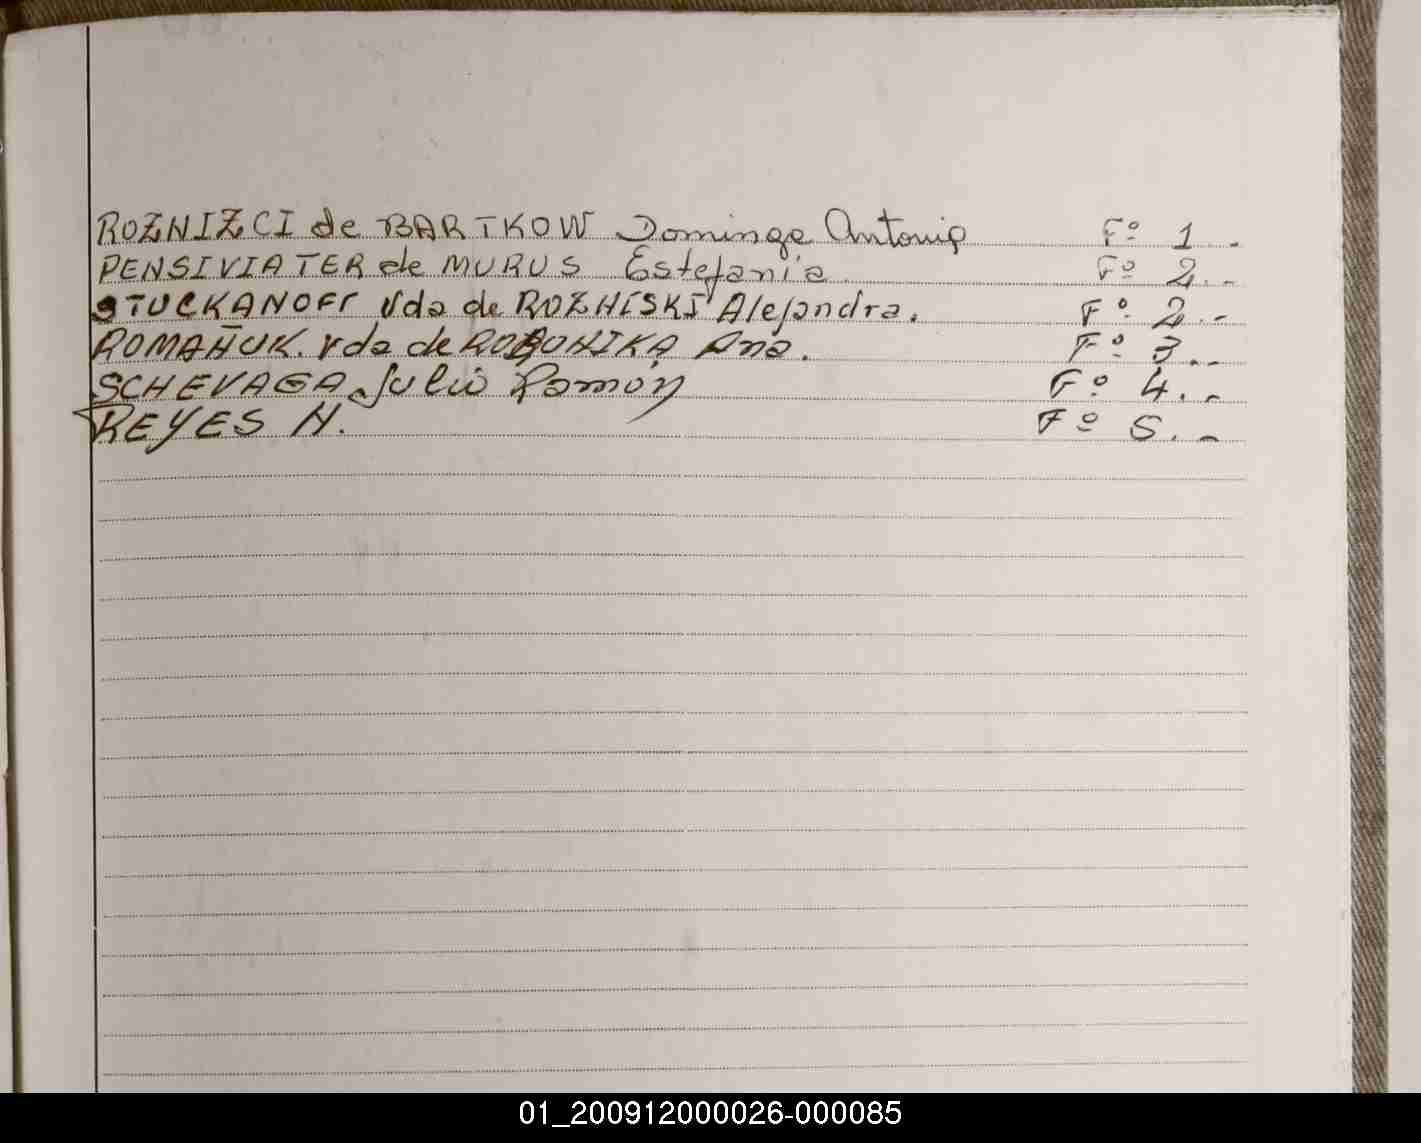 ROZNIZCI de BARTKOW Dominga Antonia Fº 1.-
PENSIVIATER de MURUS Estefania Fº 2.-
STUCKANOFF Vda de ROZHISKI Alejandra. Fº 2.-
ROMAÑUK. Vda de ROBOHIKA Ana. Fº 3.-
SCHEVAGA Julio Ramón Fº 4.-
REYES N. Fº 5.-
01_200912000026-000085